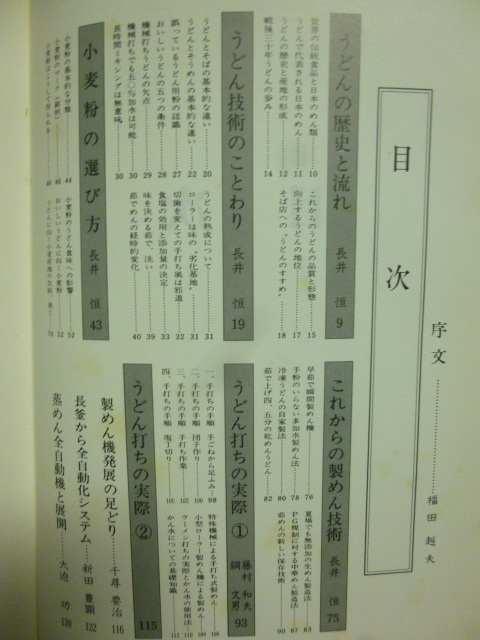 目次
序文……福田赳夫
うどんの歴史と流れ 長井 恒 9
世界の伝統食品と日本のめん類……10
中国から伝来される日本のめん……11
うどんの歴史と産地の形成……12
戦後三十年うどんの歩み……14
これからのうどんの品質と形態……15
向上するうどんの地位……17
そば店への“うどんのすすめ”……18
うどん技術のことわり 長井 恒 19
うどんとそばの基本的な違い……20
うどんとそうめんの基本的な違い……22
誤っているうどん用粉の認識……27
おいしいうどんの五つの条件……28
機械打ちうどんの欠点……29
機械打ちでも五〇%加水は可能……30
長時間ミキシングは無意味……30
うどんの熟成について……31
ローラーは味の“劣化基地”……31
切歯を変えての手打ち風は邪道……32
食塩の効用と添加量の決定……33
味を決める茹で、洗い……39
茹でめんの経時的変化……40
小麦粉の選び方 長井 恒 43
小麦粉の基本的な分類……44
小麦粉はこうして作られる……46
小麦粉のうどん食味への影響……52
おいしいうどんに向く小麦粉……52
これからの製めん技術 長井 恒 75
早茹で瞬間製めん機……76
手粉のいらない多加水製めん法……78
冷凍うどんの自家製法……80
茹で上げ四、五分の乾めんうどん……82
夏場でも無添加の生めん製造法……83
PG規制に対する中華めん製造法……87
茹めんの新しい保存技術……90
うどん打ちの実際① 藤村 和夫 綱 文男 93
一、手打ちの手順 手ごねから足ふみ……98
二、手打ちの手順 団子作り……100
三、手打ちの手順 手打ち作業……102
四、手打ちの手順 庖丁切り……105
特殊機械による手打ち式製めん……106
小型ローラー製めん機による製めん
ラーメン打ちの実際とかん水の使用法……110
かん水についての基礎知識……112
うどん打ちの実際② 115
製めん機発展の足どり……千尋 要治 116
長釜から全自動化システム……新田 豊顕 122
蒸めん全自動機と展開……大迫 功 130